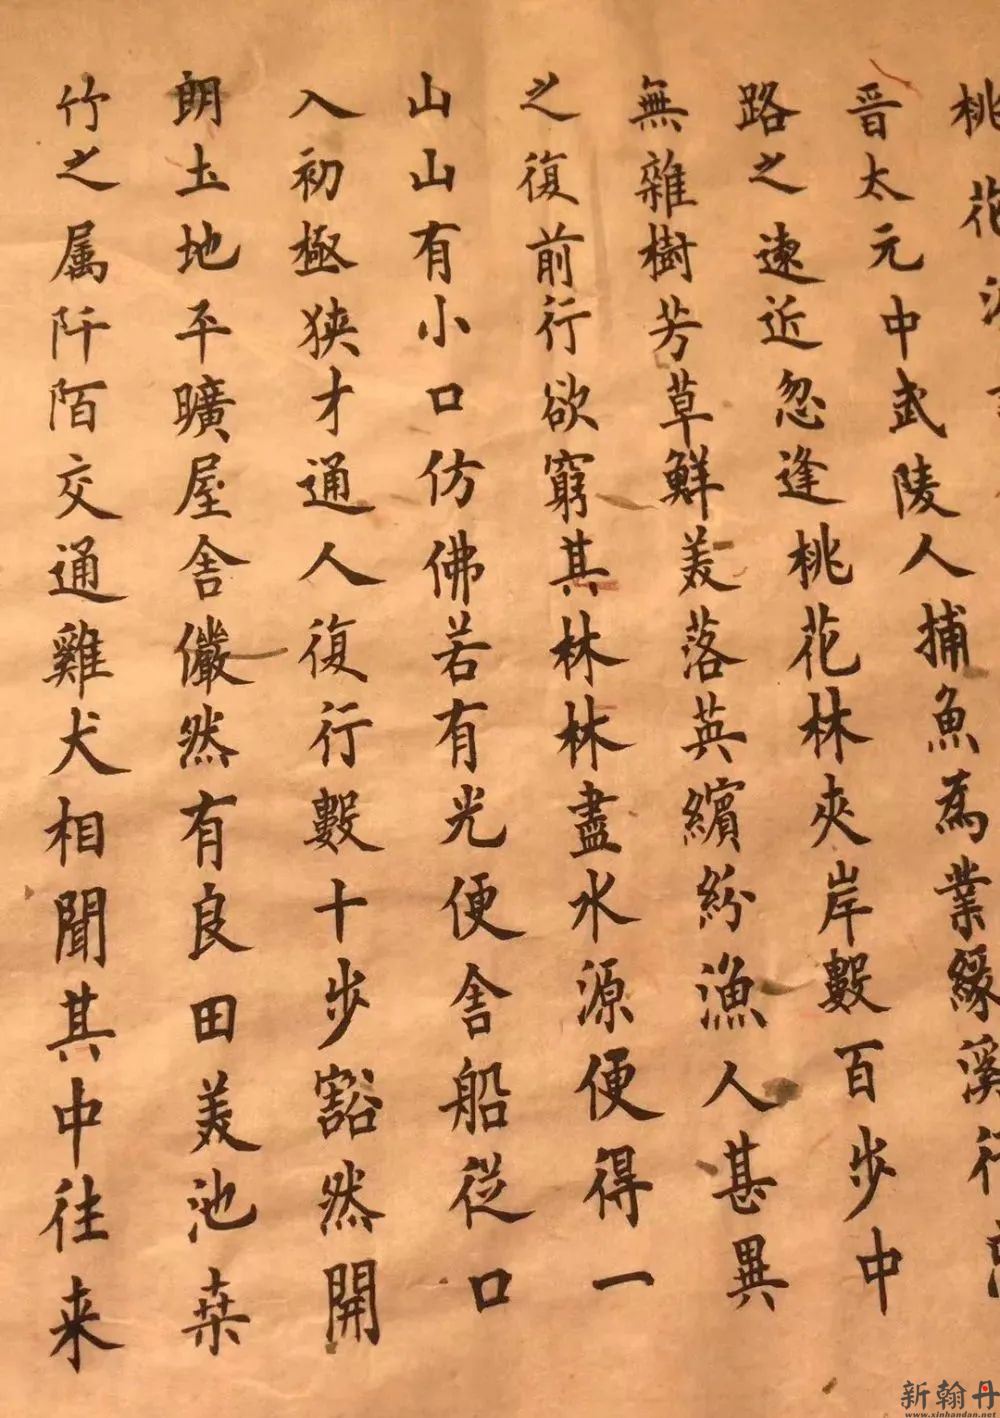 桃花源
晋太元中武陵人捕魚為業緣溪行忘
路之遠近忽逢桃花林夾岸數百步中
無雜樹芳草鮮美落英繽紛漁人甚異
之復前行欲窮其林林盡水源便得一
山山有小口仿佛若有光便舍船從口
入初極狹才通人復行數十步豁然開
朗土地平曠屋舍儼然有良田美池桑
竹之属阡陌交通雞犬相聞其中往来
新翰丹
www.xinhandan.net